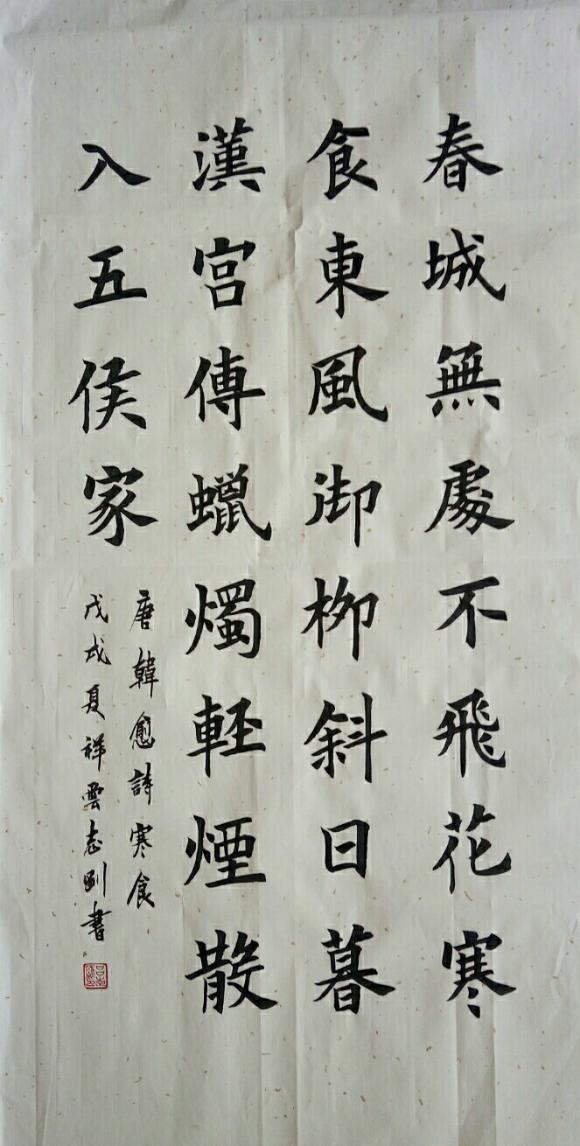 春城無處不飛花寒
食東風御柳斜日暮
漢宮傳蠟燭輕煙散
入五侯家
唐韓愈詩寒食
戊戌夏祥雲志剛書